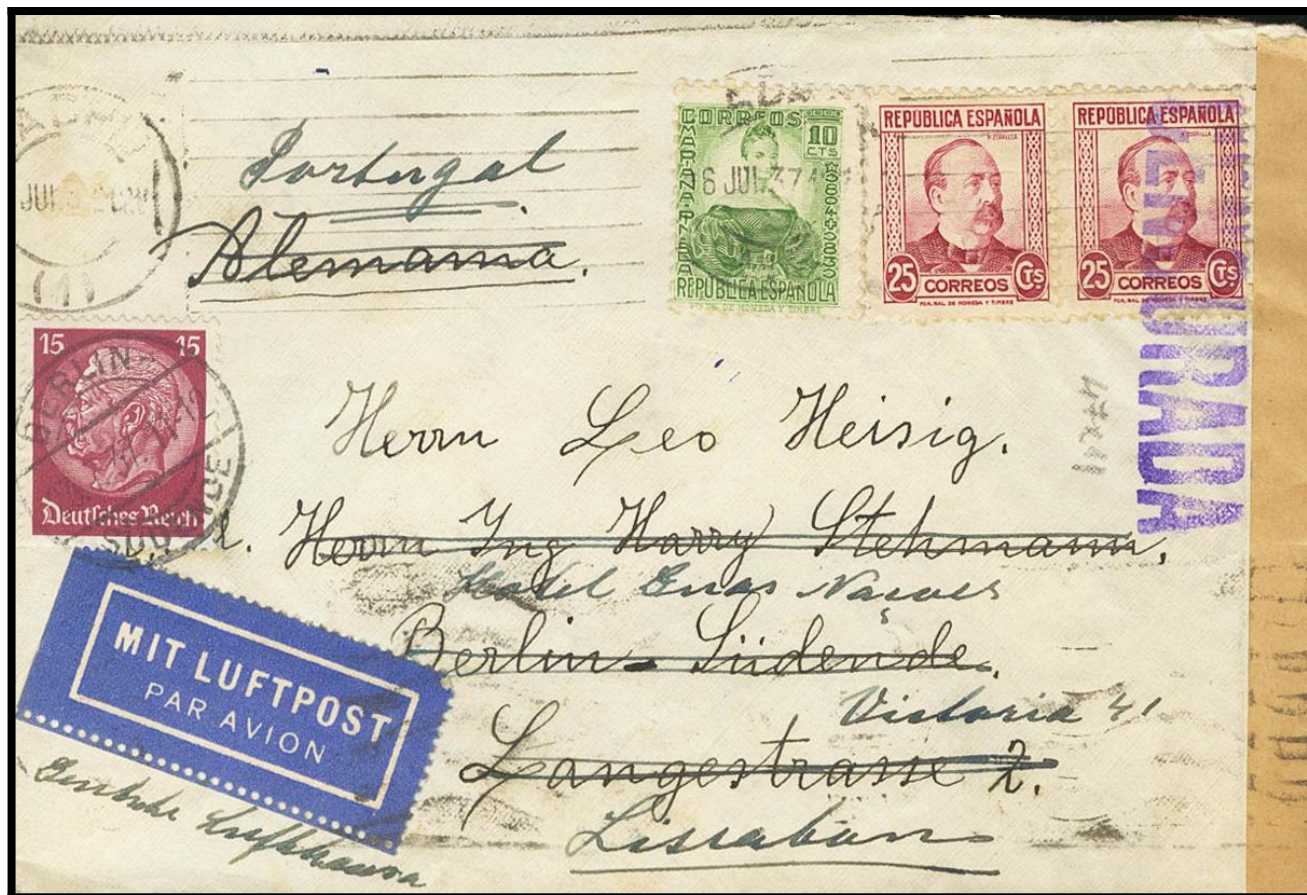 Portugal
Alemania.
CORREOS 10 CTS
MARIANA PINEDA
1804-1830
REPUBLICA ESPAÑOLA
16 JUL 37
REPÚBLICA ESPAÑOLA
25 CORREOS CTS
REPÚBLICA ESPAÑOLA
25 CORREOS CTS
CENSURADA
15 15
BERLIN-
SÜDENDE
Deutsches Reich
Herrn Leo Heisig.
Herrn Ing Harry Stehmann,
Hotel Duas Naçoes
Berlin-Südende.
Victoria 41
Langestrasse 2.
Lissabon
MIT LUFTPOST
PAR AVION
Deutsche Lufthansa